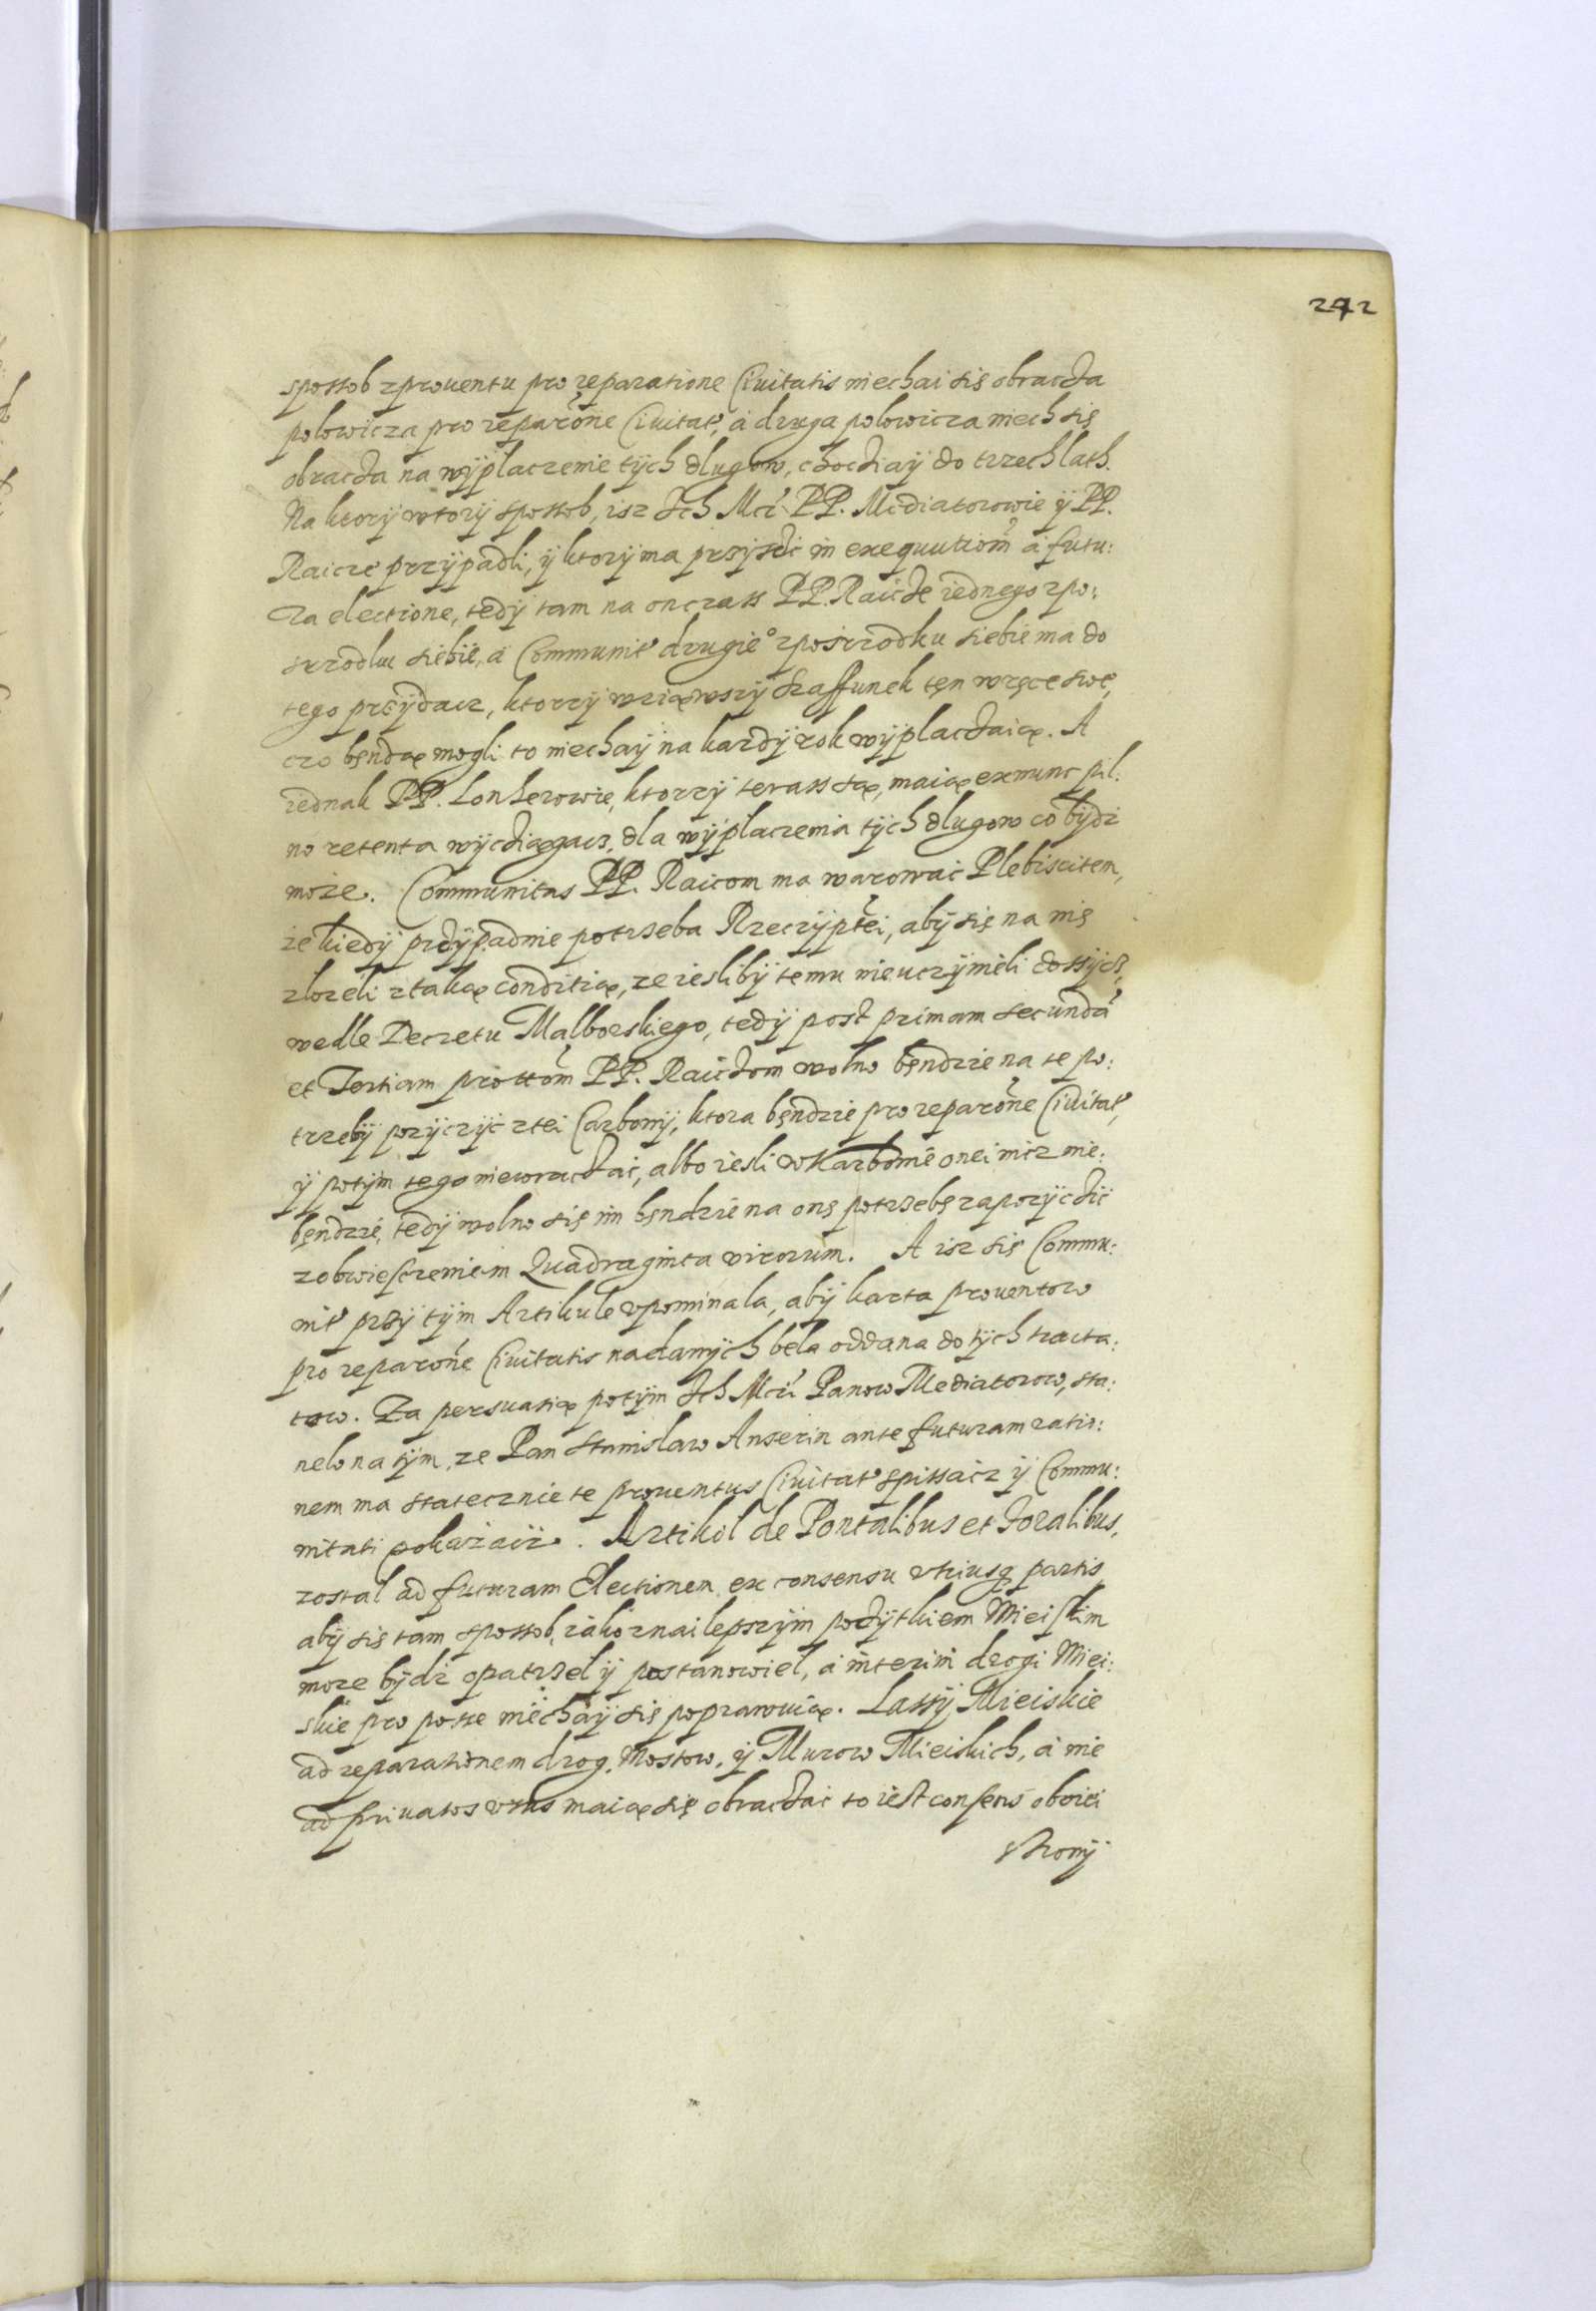 242
spossob z prouentu pro reparatione Ciuitatis niechai się obracża
polowicza pro reparõne Ciuitat', a druga polowicza niech się
obracża na wÿplaczenie tÿch dlugow, choćiaÿ do trzech lath.
Na ktorÿ wtorÿ spossob, isz Ich Mcż PP. Mediatorowie ÿ PP.
Raicze przÿpadli, ÿ ktorÿ ma przÿsdz in exequutiom̃ a futu:
ra electione, tedÿ tam na on czass PP. Raicże iednego z po:
srzodku siebie, a Communit' drugie° z posrzodku siebie ma do
tego przÿdacz, ktorzÿ wziąwszÿ szaffunek tęn w ręce swe,
czo będą mogli to niechaÿ na kazdÿ rok wÿplacżaią. A
iednak PP. Lonherowie, ktorzÿ terass są, maią ex nunc pil:
no retenta wÿciągacz, dla wÿplaczenia tÿch dlugow co bÿdz
moze. Communitas PP. Raicom ma warowac Plebiscitem,
ze kiedÿ przÿpadnie potrzeba Rzeczÿptei, abÿ się na nię
zlozeli z taką conditią, ze ieslibÿ temu nie uczÿnieli dossÿcz,
wedle Decretu Malborskiego, tedÿ post primam secundã
et Tertiam prottõm PP. Raicżom wolno bęndzie na te po:
trzebÿ pozÿczÿc z tei Carbonÿ, ktora bęndzie pro reparõne Ciuitat',
ÿ potÿm tego niewracżac, albo iesli w Karbonie onei nicz nie:
bęndzie, tedÿ wolno się im bęndzie na onę potrzebę zapozÿcżic
z obwiesczeniem Quadraginta virorum. A isz się Commu:
nit' przÿ tÿm Artikule vpominala, abÿ karta prouentow
pro reparõne Ciuitatis nadanÿch bela oddana do tÿch tracta:
tow. Za persuatią potÿm Ich Mcż Panow Mediatorow, sta:
nelo na tÿm, ze Pan Stanislaw Anserin ante futuram ratio:
nem ma statecznie te prouentus Ciuitat' spissacz ÿ Commu:
nitati pokazacz. Artikol de Pontalibus et Foralibus,
zostal ad futuram Electionem ex consensu vtriusq partis,
abÿ się tam spossob, iako z nailepszÿm pozÿtkiem Mieiskim
moze bÿdz opatrzel ÿ postanowiel, a interim drogi Miei:
skie pro posse niechaÿ się poprawuią. Lassÿ Mieiskie
ad reparationem drog, Mostow, ÿ Murow Mieiskich, a nie
ad priuatos vsus maią się obracżac to iest consens oboiei
stronÿ